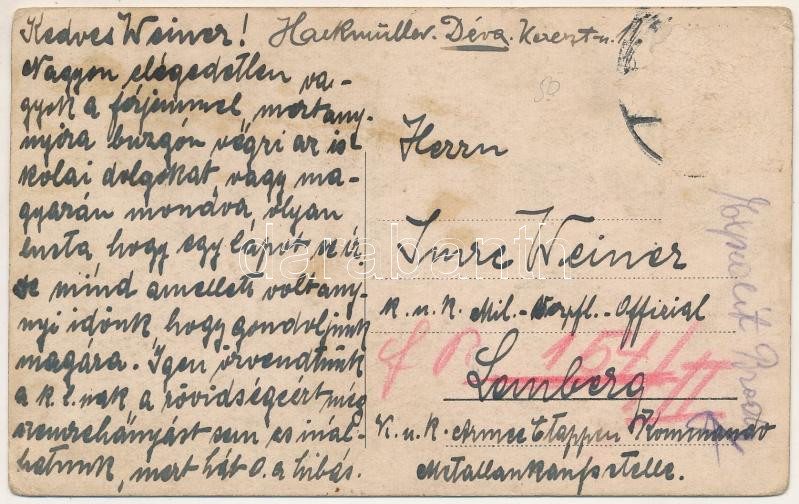 Kedves Weiner! Hackmüller. Déva. Kereszt-u. 11
Nagyon elégedetlen va-
gyok a férjemmel, mert any-
nyira buzgón végzi az is-
kolai dolgokat vagy ma-
gyarán mondva, olyan
lusta hogy egy lapot se ír,
de mind a mellett volt any-
nyi időnk hogy gondoljunk
magára. Igen örvendtünk
a k. l.-nak a rövidségeért még
szemrehányást sem is inál-
hatunk, mert hát ő a hibás.
50
Herrn
Imre Weiner
k. u. k. Mil.-Verpfl.-Official
f P. 154/II
Lemberg
K. u. k. Armee Etappen Kommando
Metallankaufstelle.
darabanth